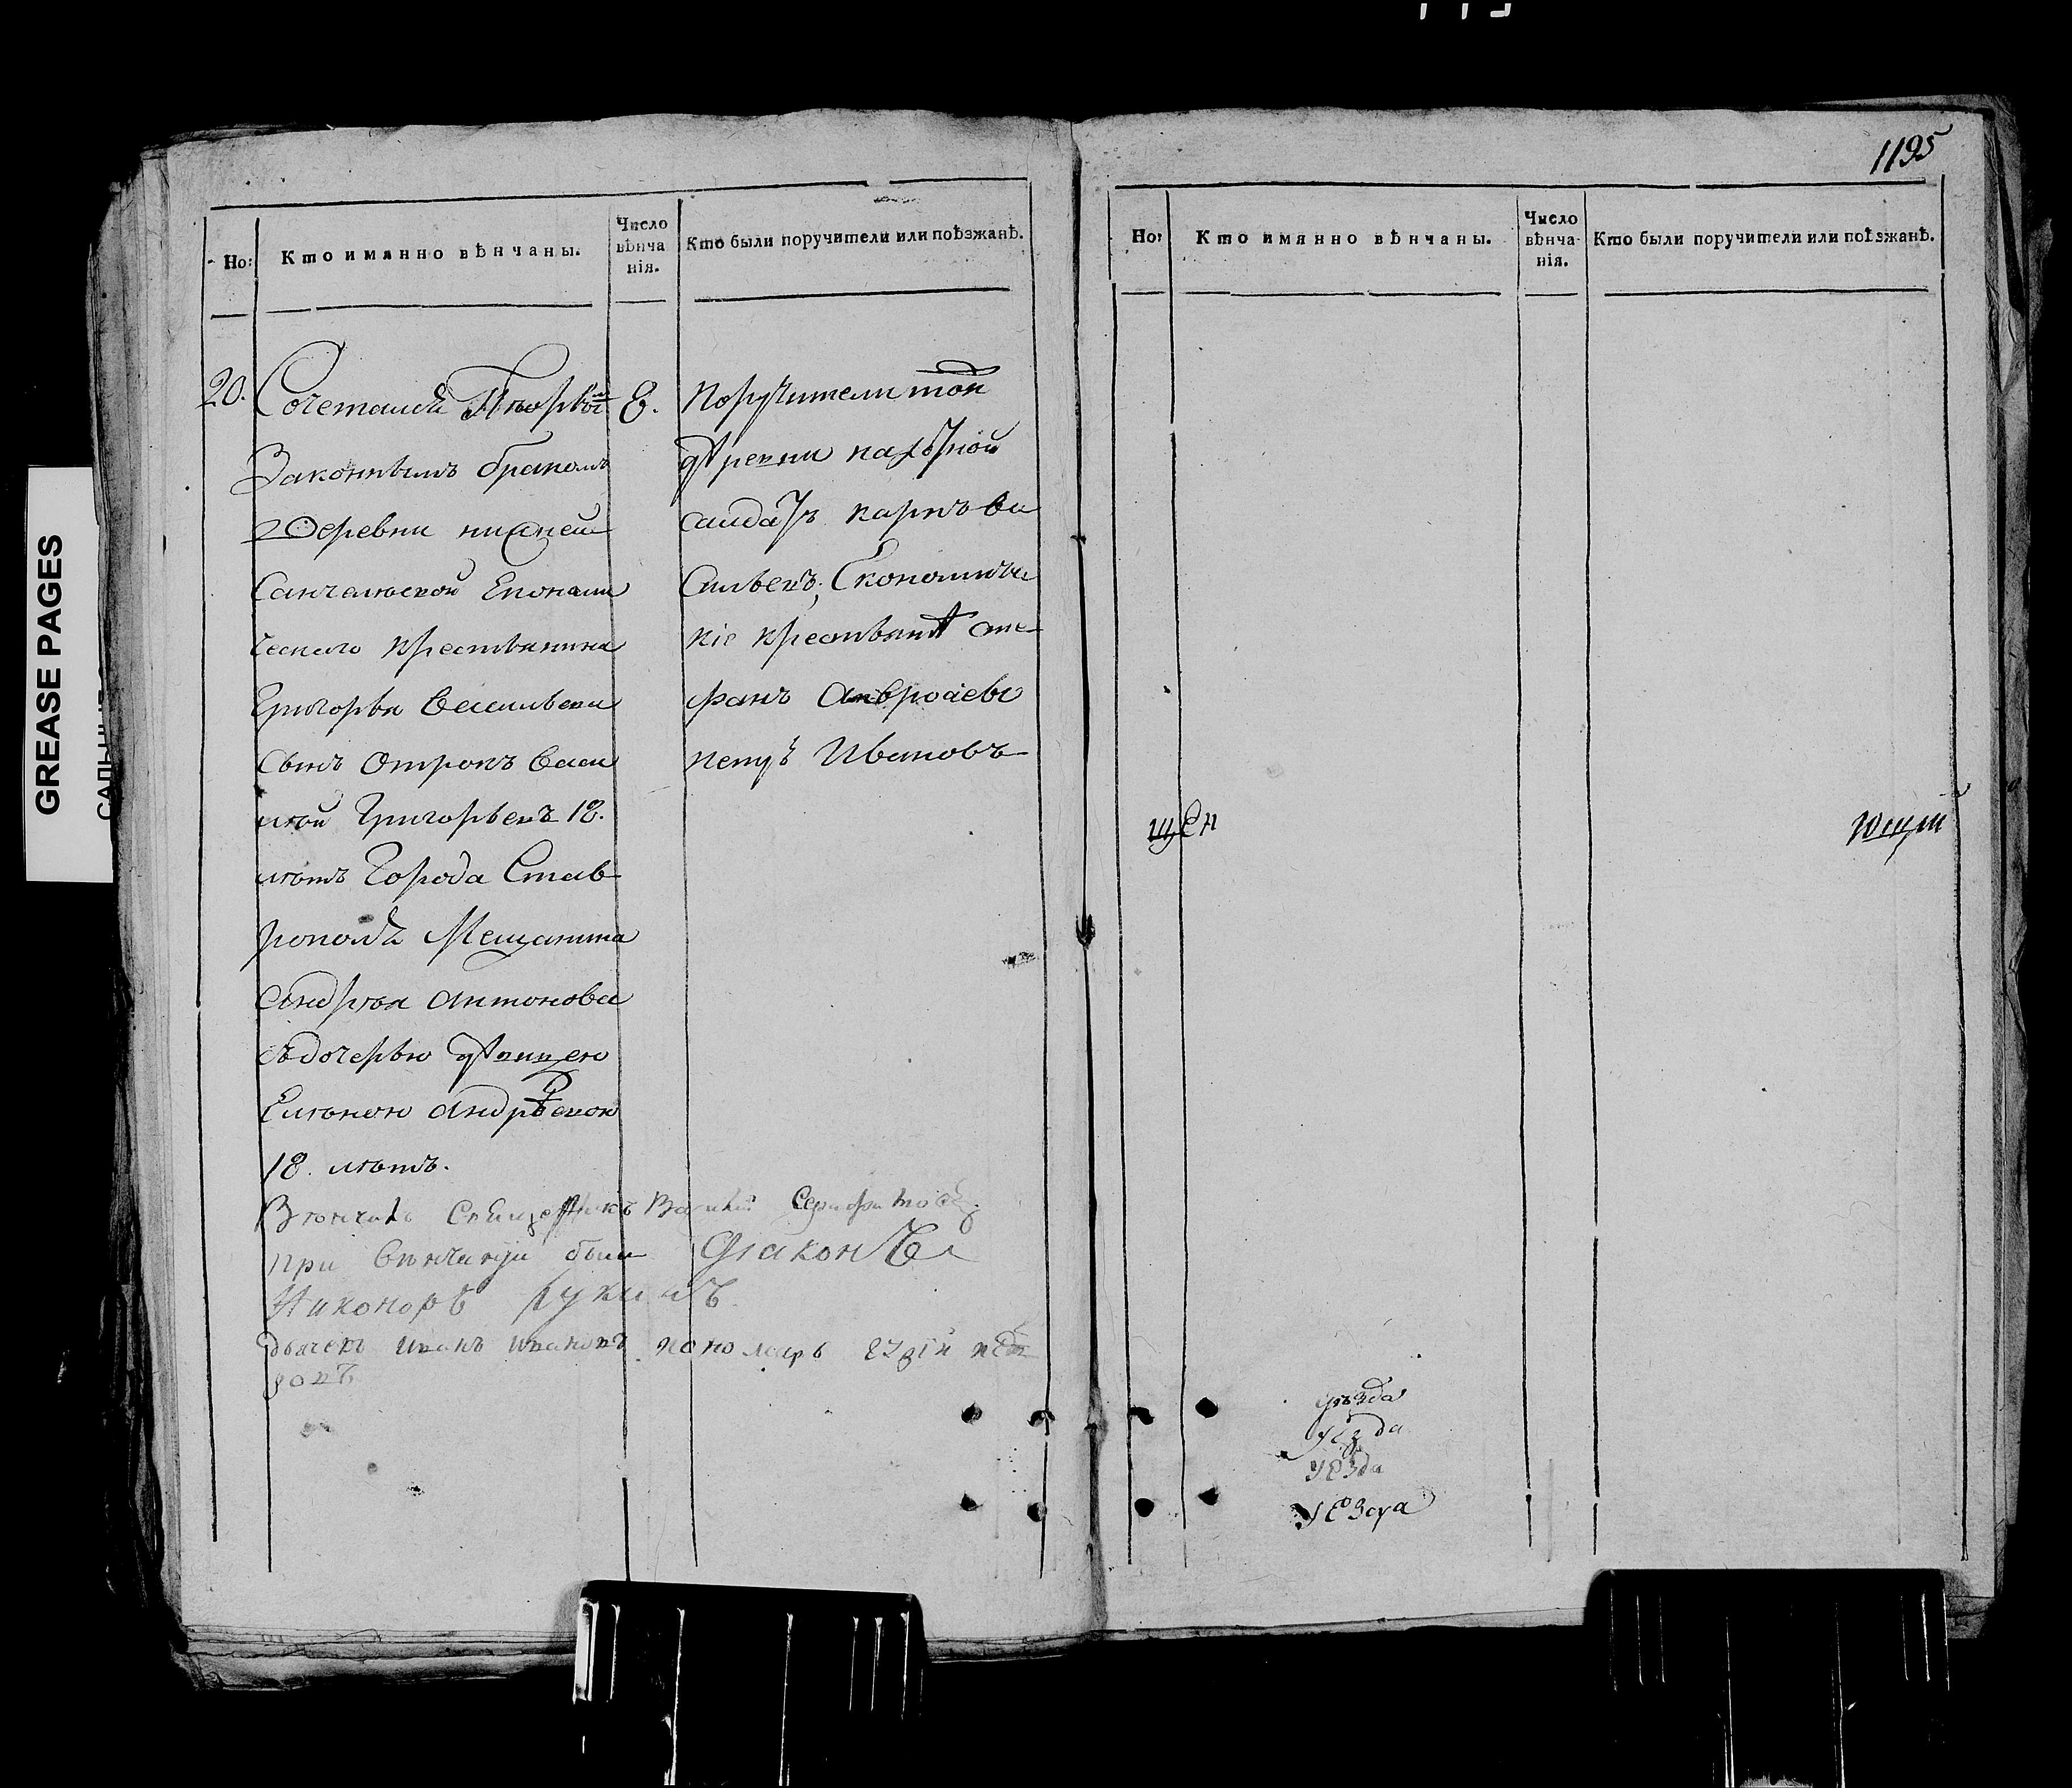 1195
Но:
Кто имянно вѣнчаны.
Число вѣнча нія.
Кто были поручители или поѣзжанѣ.
20. Сочетался Первым
Законнымъ бракомъ
деревни нижней
Санчелеевской Економи
ческаго крестьянина
Григорья Васильева
сынъ Отрокъ Васи
лей Григорьевъ 18.
лѣтъ Города Став
рополя Мещанина
Андрѣя Антонова
съ дочерью девицею
Еленою Андрѣевою
18. лѣтъ.
8.
поручители той
деревни
салдатъ карпъ ва
сильевъ, Економиче
кіе крестьяне сте
фанъ
петръ Ивановъ
Венчалъ Священникъ Василий
при венчании были Диаконъ
Никоноръ Лукинъ
дьячекъ иванъ ивановъ пономарь
Но:
Кто имянно вѣнчаны.
Число вѣнча- нія.
Кто были поручители или поѣзжанѣ.
щен
ющий
уѣзда
уезда
уезда
уезда
GREASE PAGES